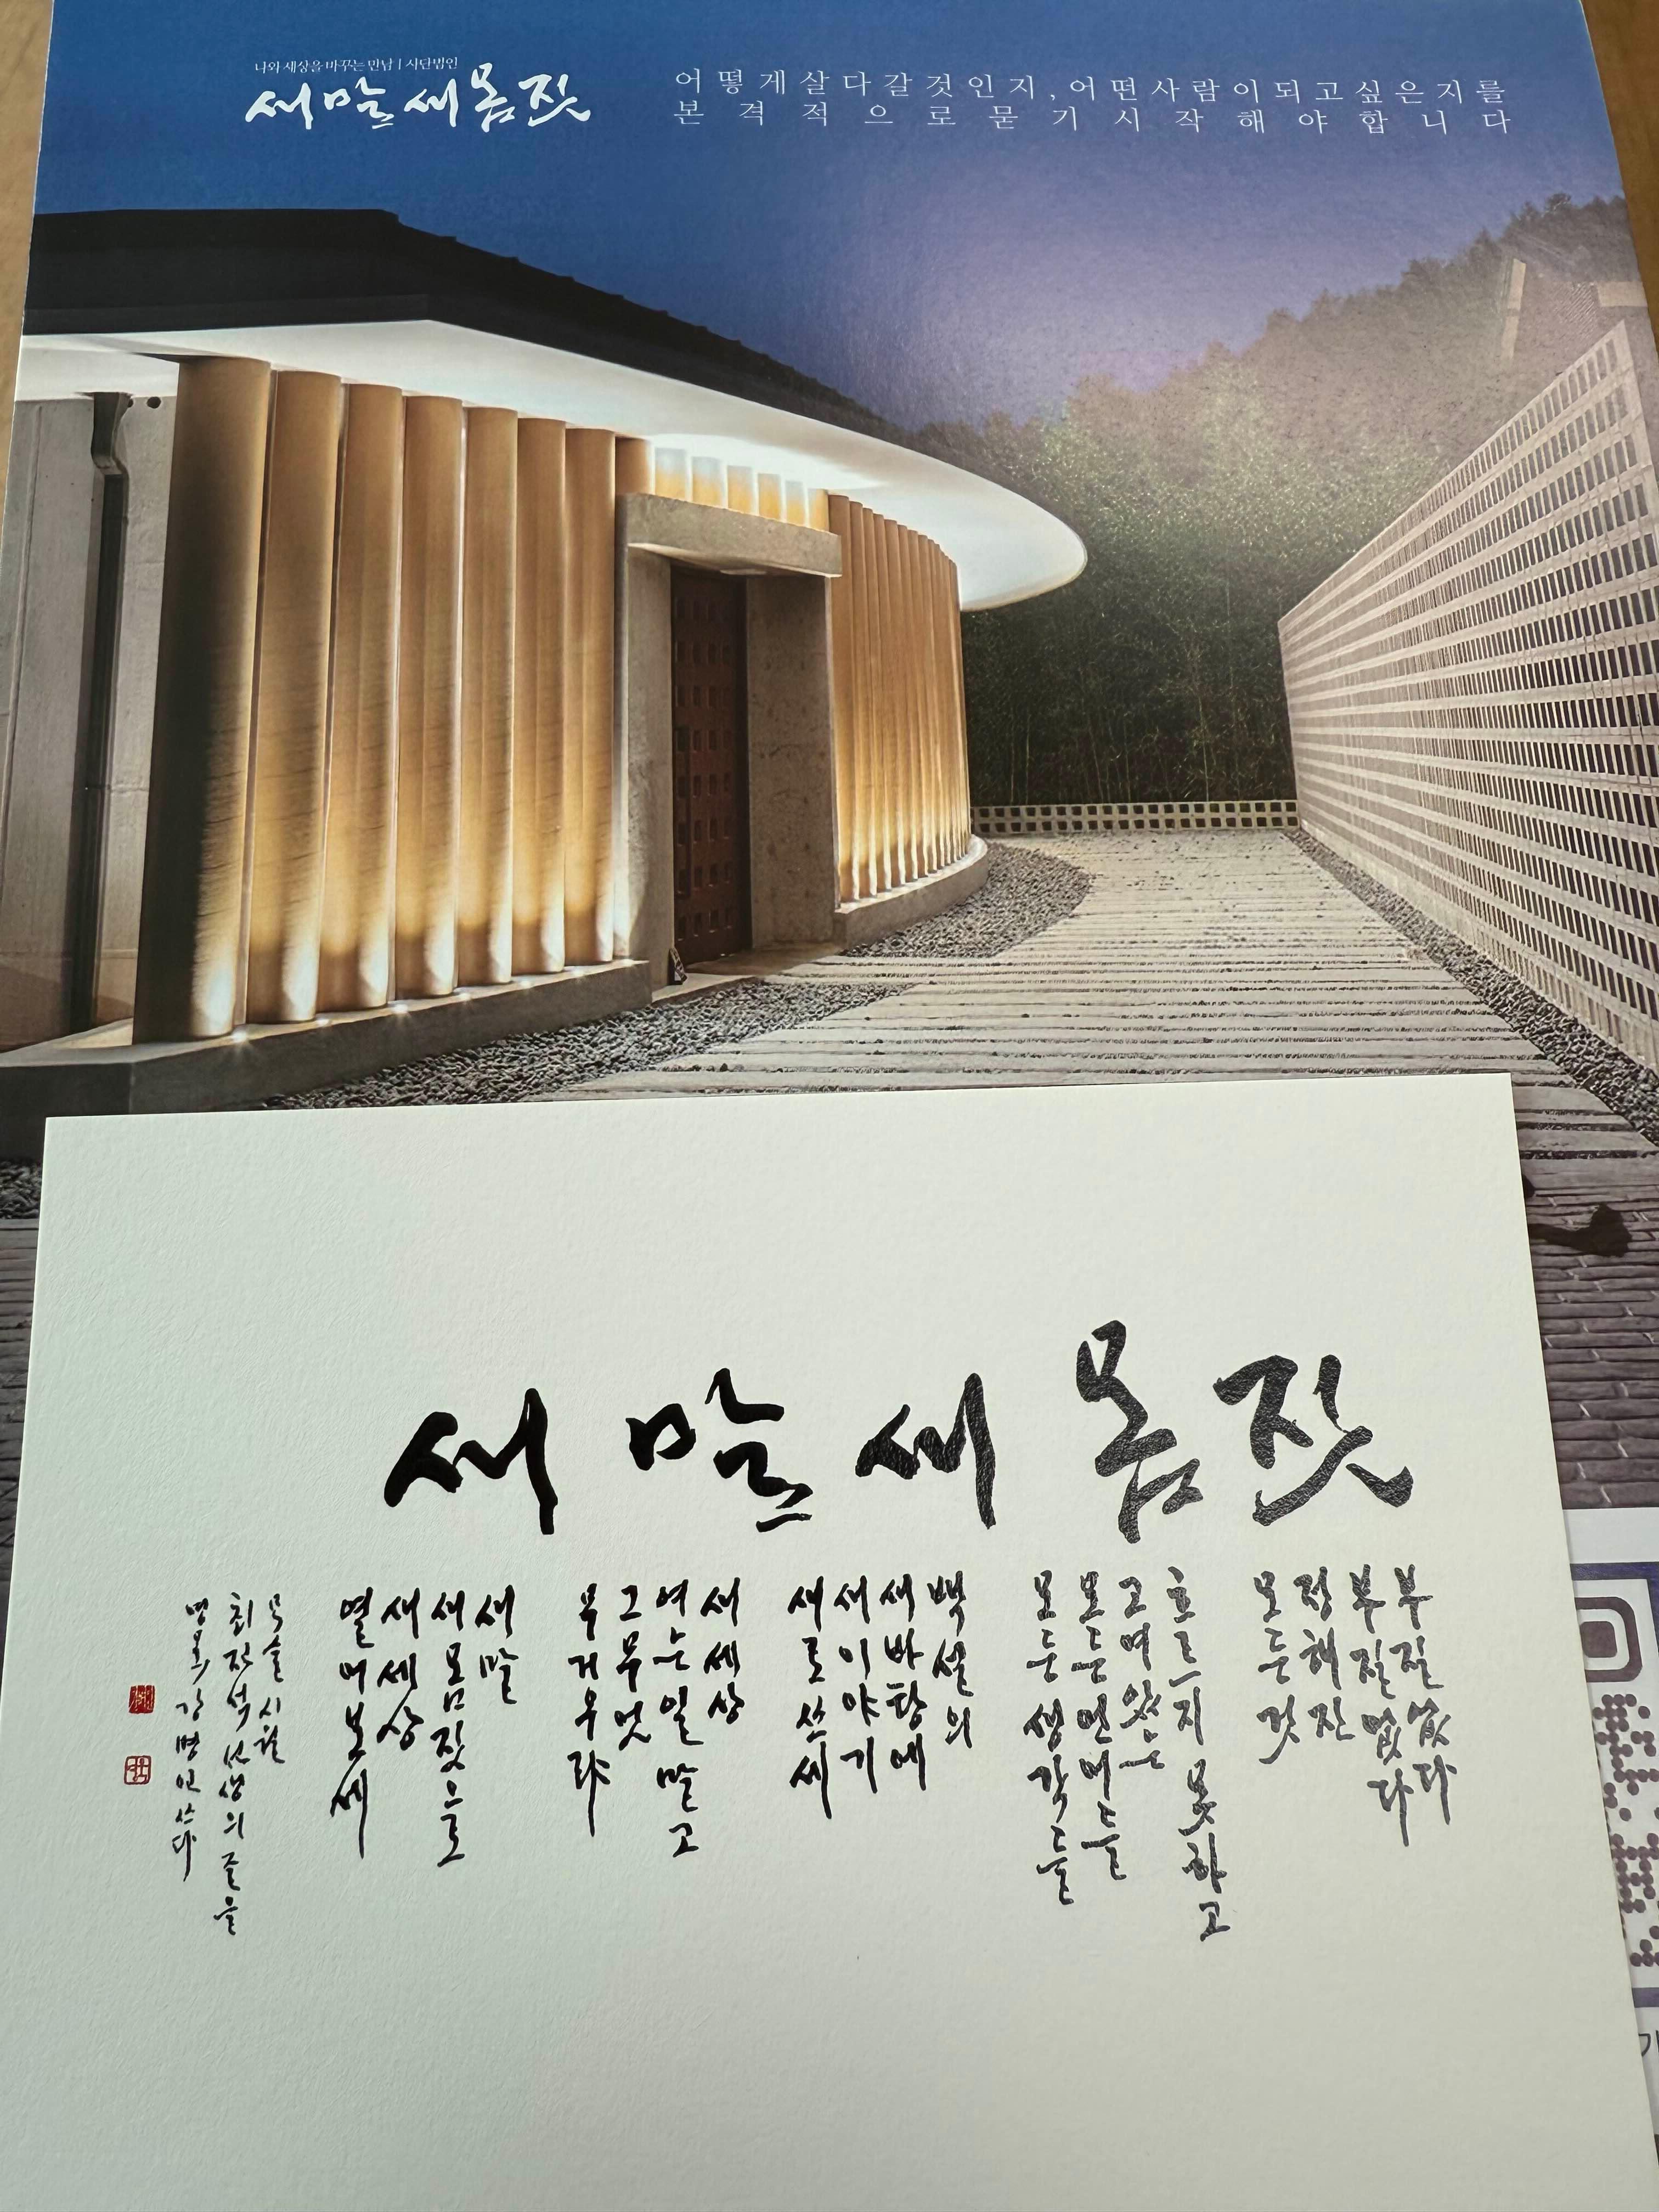 나와 세상을 바꾸는 만남 | 사단법인
새말새몸짓
어떻게살다갈것인지,어떤사람이되고싶은지를
본격적으로묻기시작해야합니다
새말새몸짓
부질없다
부질없다
정해진
모든 것
흐르지 못하고
고여있는
모든 언어들
모든 생각들
백설의
새 바탕에
새 이야기
새로 쓰세
새 세상
여는 일 말고
그 무엇
무거우랴
새 말
새 몸짓으로
새 세상
열어보세
최진석 선생의 글을
강병인 쓰다